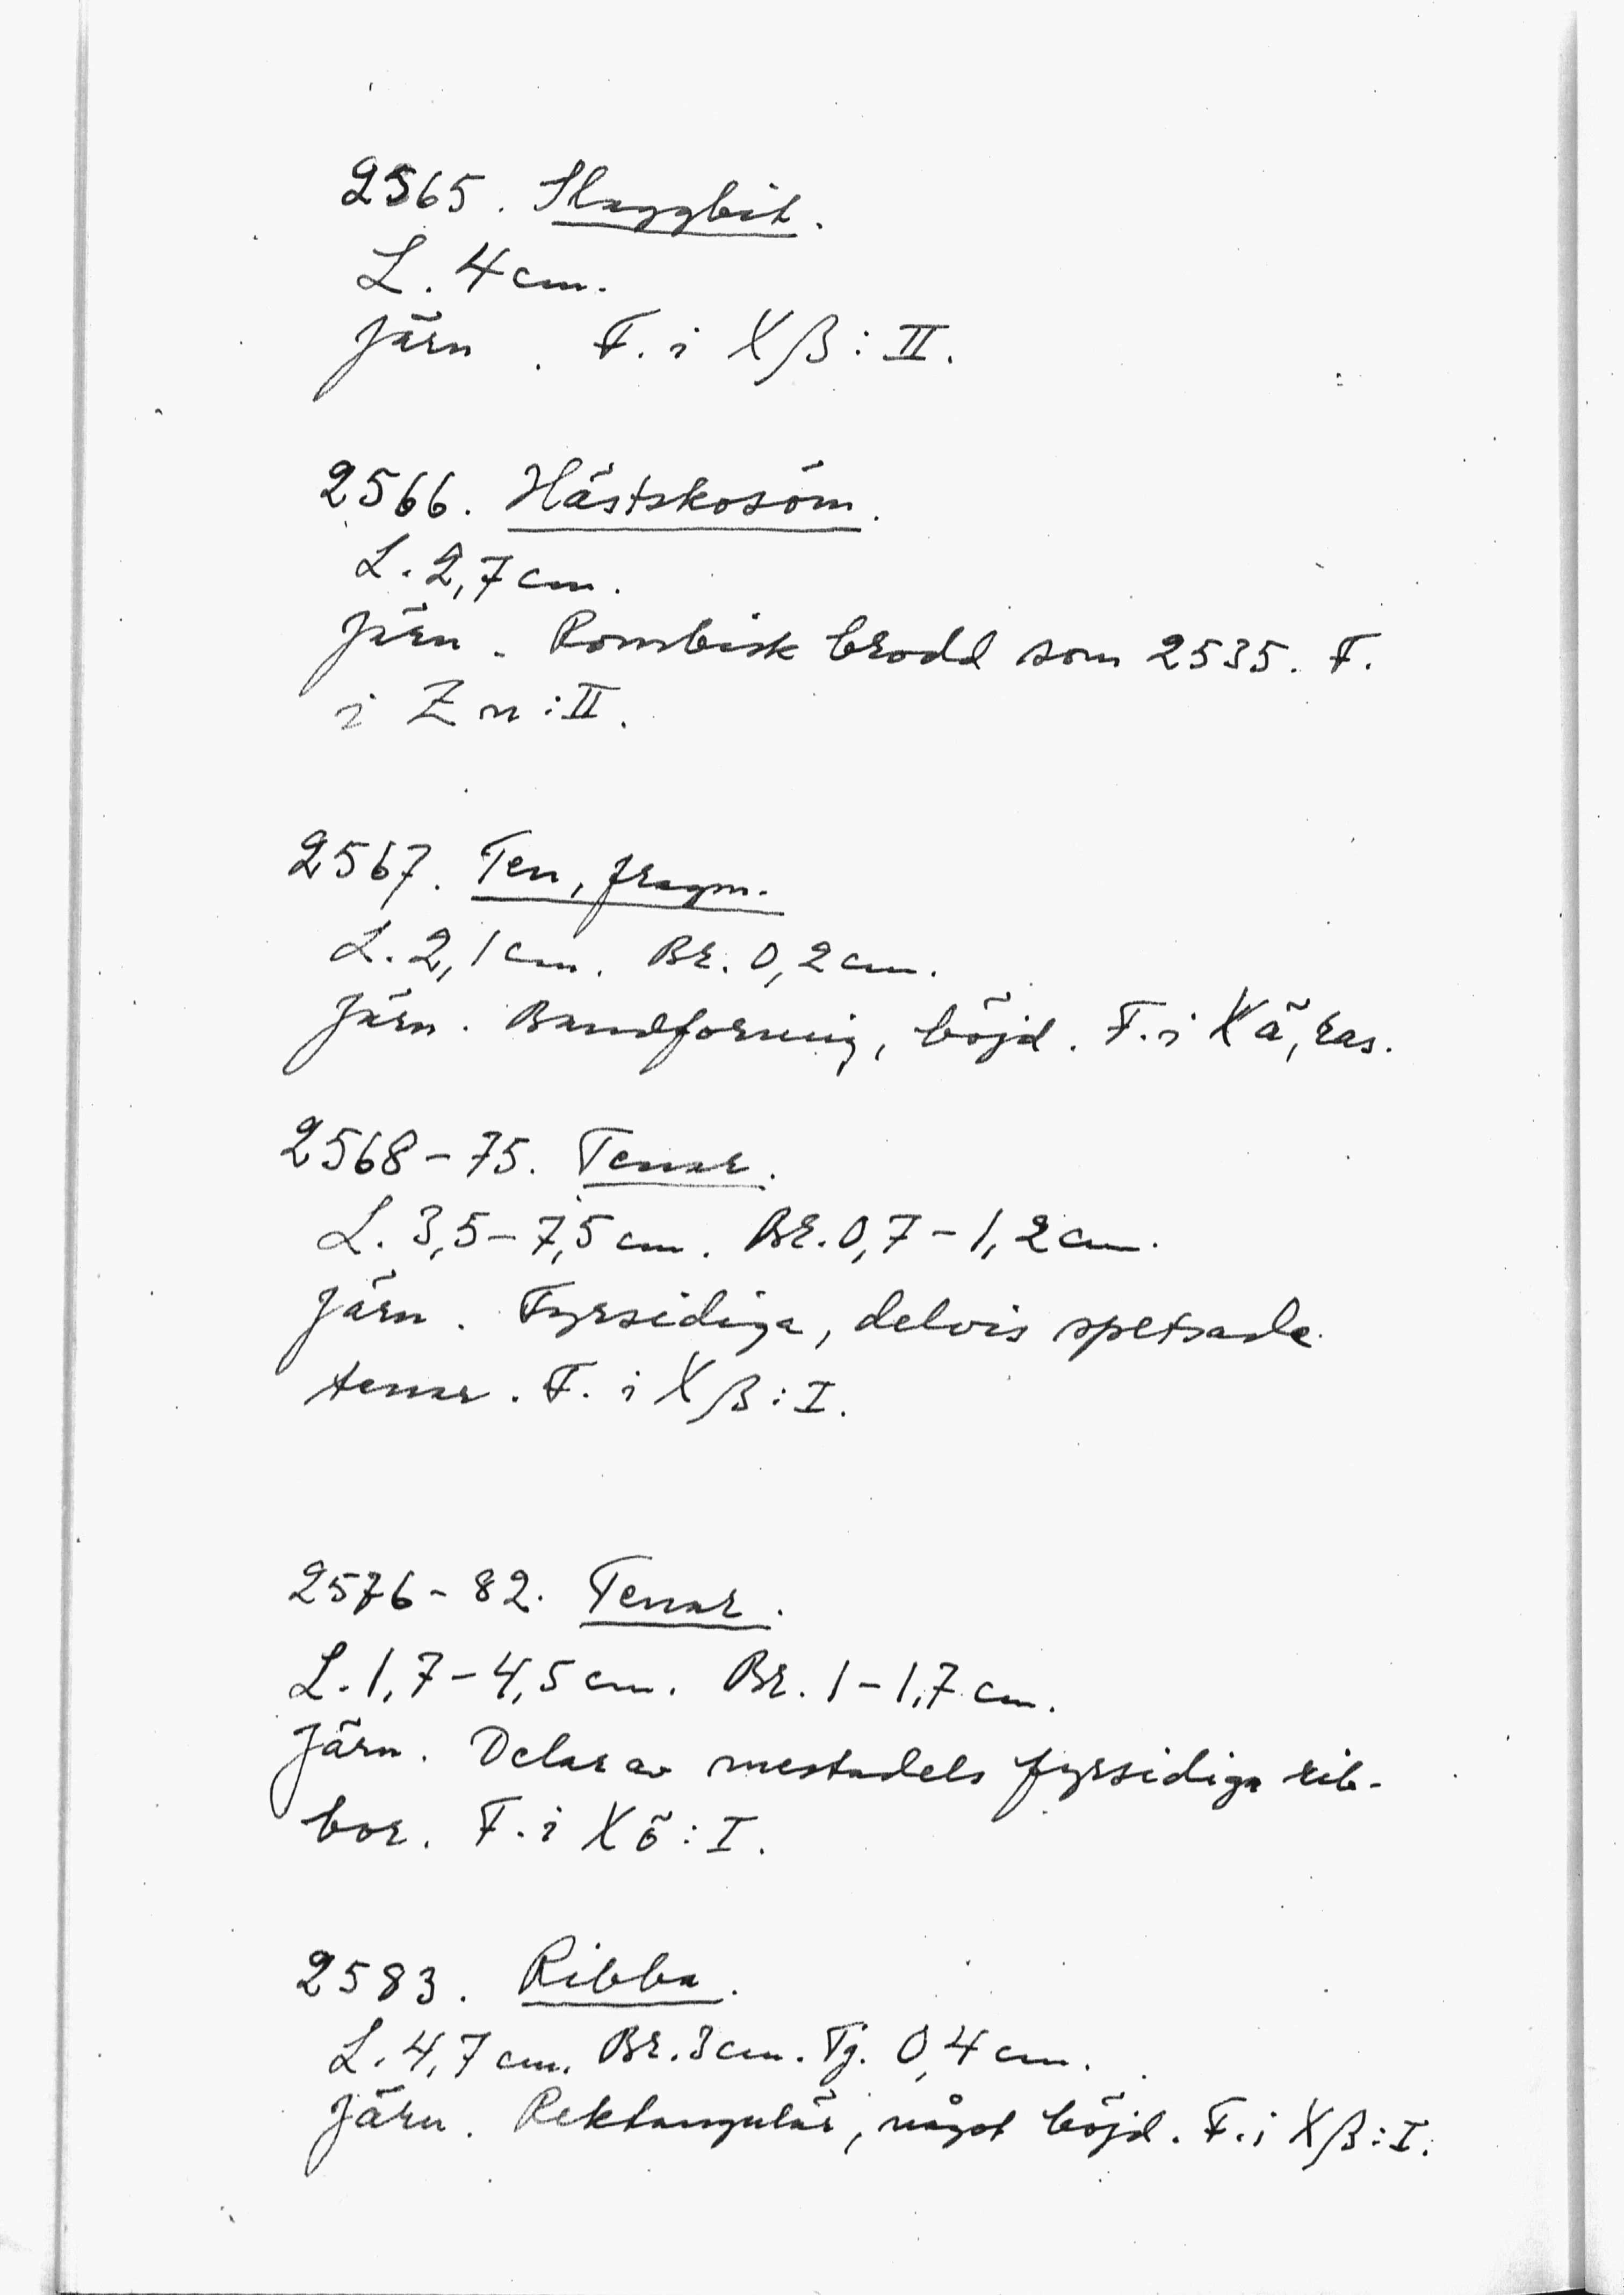 2565. Slaggbit.
L. 4 cm.
Järn. F. i Xβ:II.
2566. Hästskosöm.
L. 2,7 cm.
Järn. Rombisk brodd som 2535. F.
i Zn:II.
2567. Ten, fragm.
L. 2,1 cm. Br. 0,2 cm.
Järn. Bandformig, böjd. F. i Xä, ras.
2568-75. Tenar.
L. 3,5-7,5 cm. Br. 0,7-1,2 cm.
Järn. Fyrsidiga, delvis spetsade
tenar. F. i Xβ:I.
2576-82. Tenar.
L. 1,7-4,5 cm. Br. 1-1,7 cm.
Järn. Delar av mestadels fyrsidiga rib-
bor. F. i Xö:I.
2583. Ribba.
L. 4,7 cm. Br. 3 cm. Tj. 0,4 cm.
Järn. Rektangulär, något böjd. F. i Xβ:I.